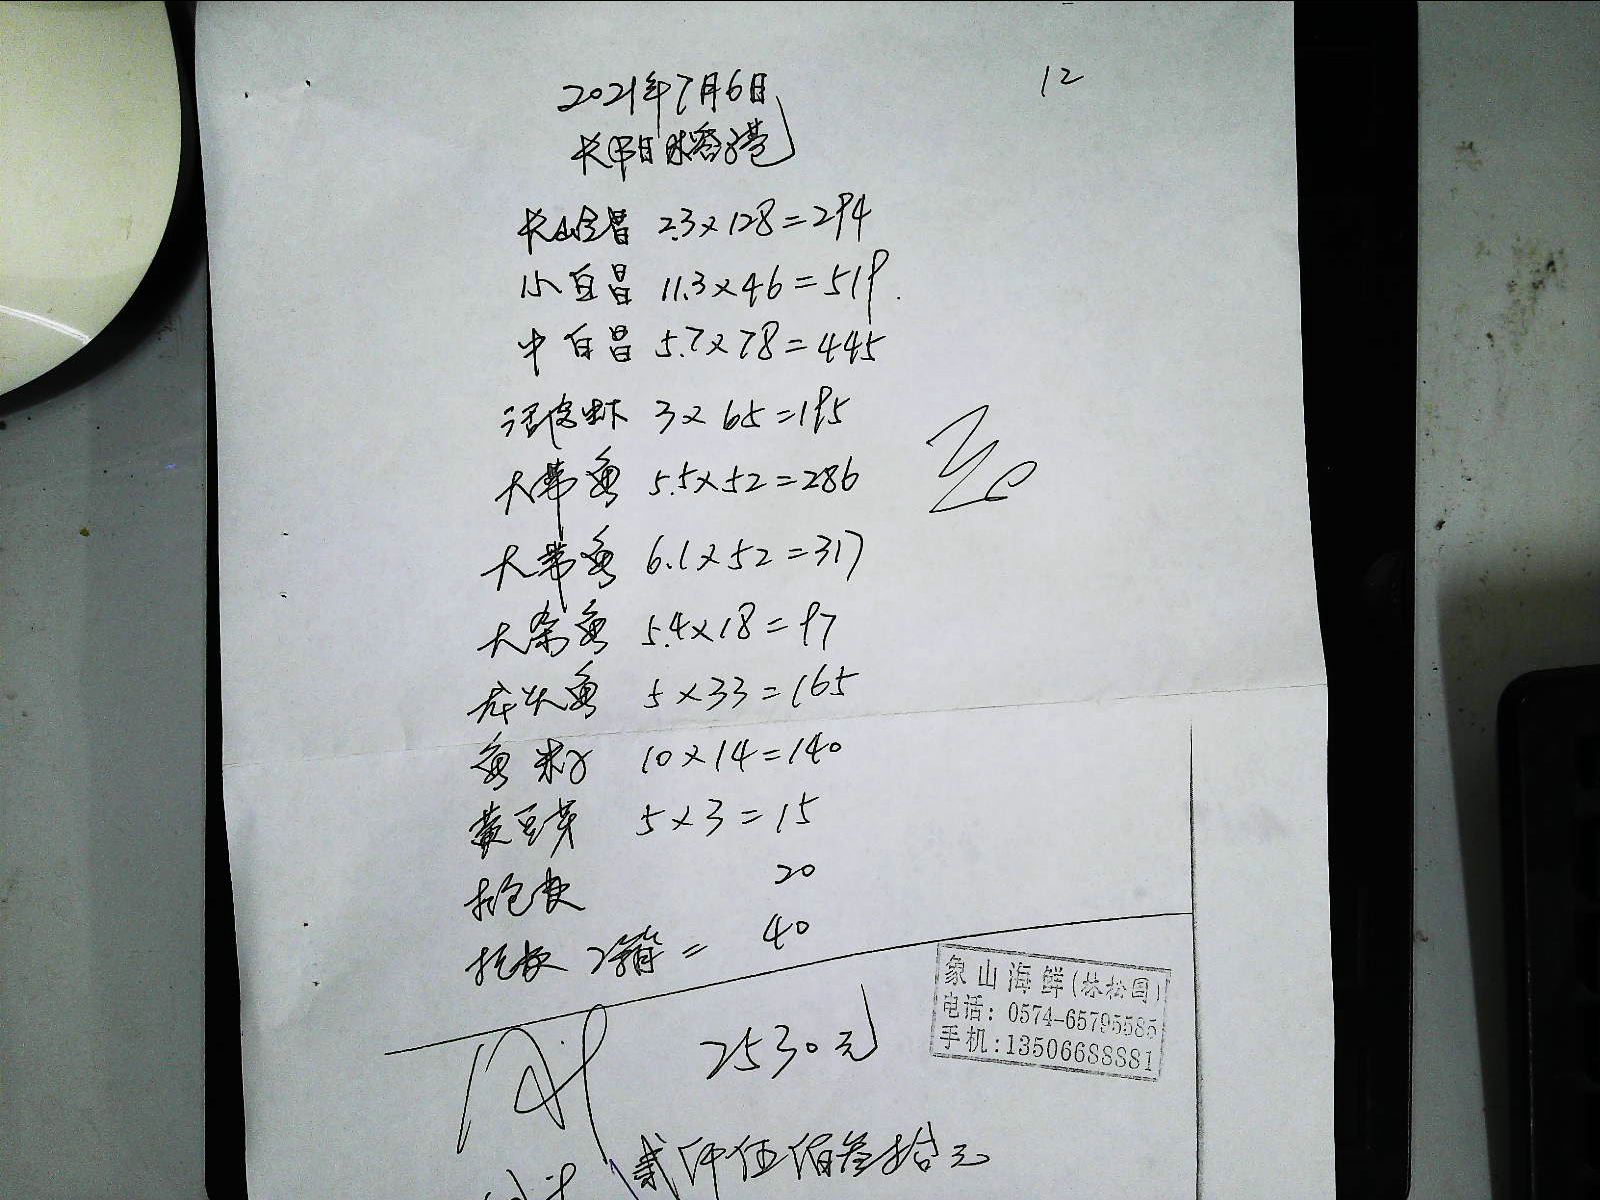 12
2021年7月6日
长山金昌 2.3×128=294
小白昌 11.3×46=519
中白昌 5.7×78=445
活虾 3×65=195
大带鱼 5.5×52=286
大带鱼 6.1×52=317
大杂鱼 5.4×18=97
龙头鱼 5×33=165
鱼籽 10×14=140
黄豆芽 5×3=15
20
2箱= 40
2530元
贰仟伍佰叁拾元
象山海鲜(林松国)
电话: 0574-65795585
手机:13506688881